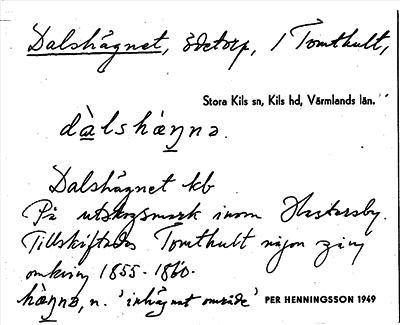 Dalshägnet, ödetorp, / Tomthult,
Stora Kils sn, Kils hd, Värmlands län.
dàlshæŋnə.
Dalshägnet kb
På utskogsmark inom Hastersby.
Tillskiftades Tomthult någon gång
omkring 1855-1860.
hæŋnə, n. 'inhägnat område'
PER HENNINGSSON 1949